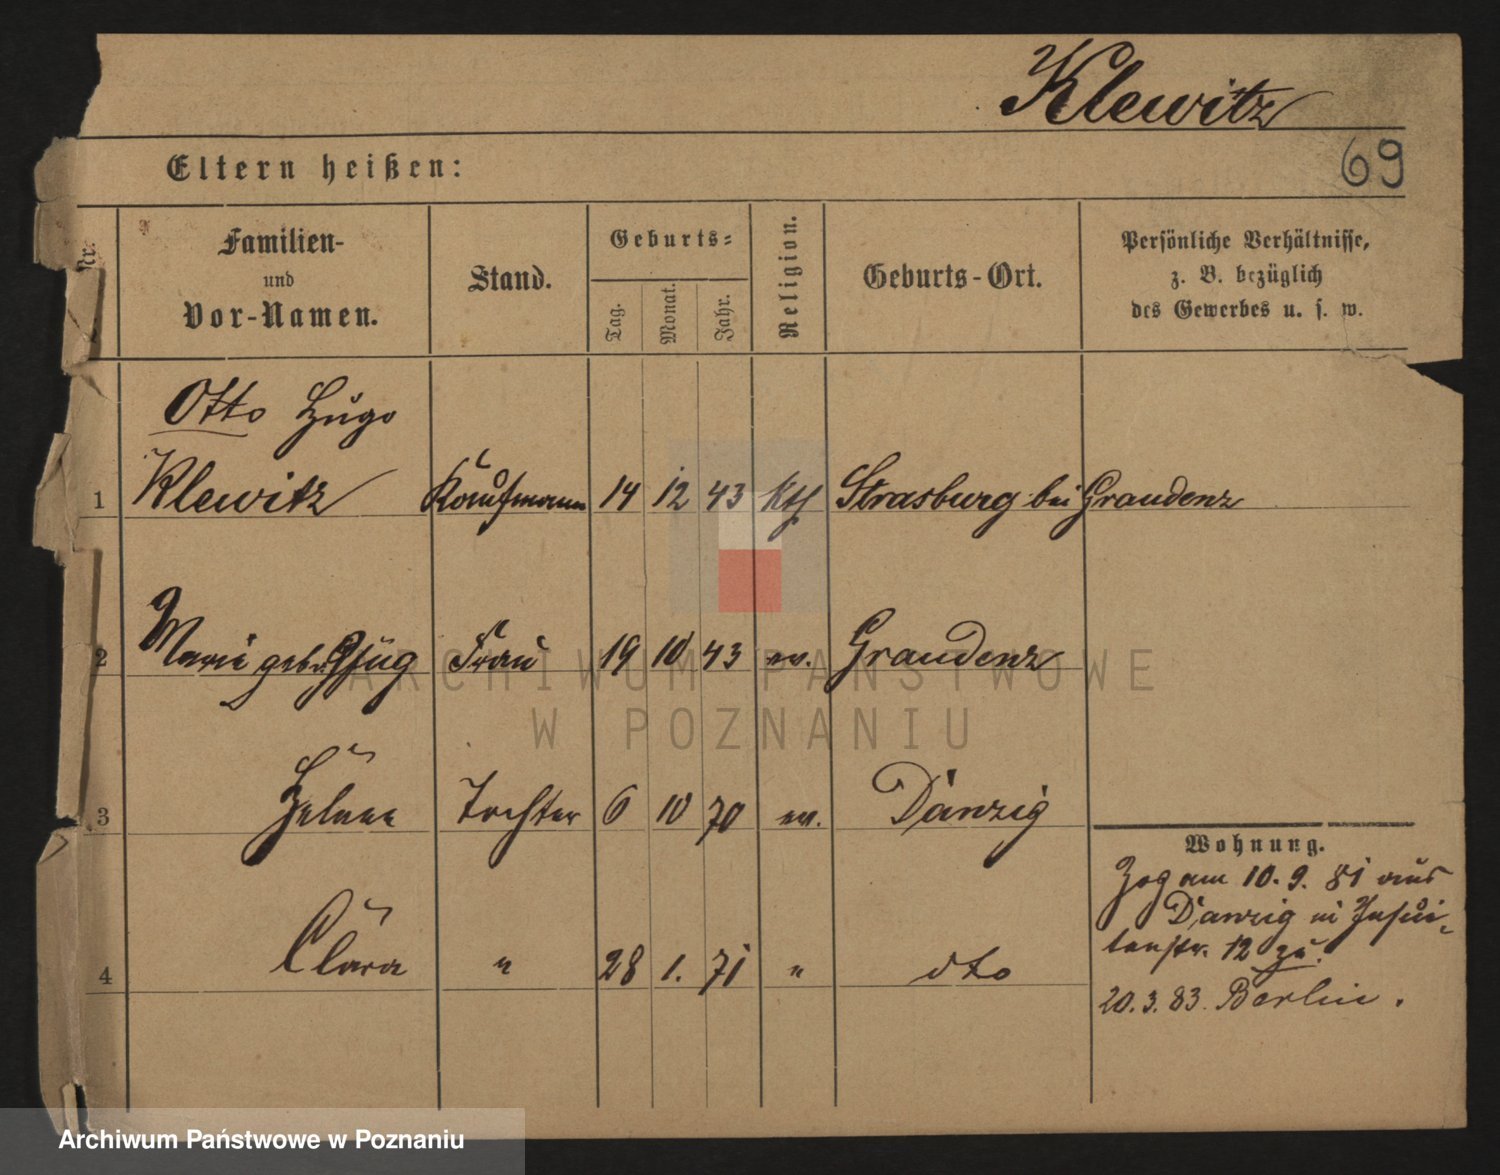 Klewitz
Eltern heißen:
69
Nr.
Familien-
und
Vor-Namen.
Stand.
Geburts-
Tag.
Monat.
Jahr.
Religion.
Geburts-Ort.
Persönliche Verhältnisse,
z. B. bezüglich
des Gewerbes u. s. w.
Otto Hugo
1 Klewitz Kaufmann 14 12 43 kth Strasburg bei Graudenz
2 Marie geb. Frau 19 10 43 ev. Graudenz
3 Helene Tochter 6 10 70 ev. Danzig
4 Clara " 28 1. 71 " dto
Wohnung.
Zog am 10. 9. 81 aus
Danzig in Jesui-
tenstr. 12 zu.
20. 3. 83. Berlin.
ARCHIWUM PAŃSTWOWE
W POZNANIU
Archiwum Państwowe w Poznaniu